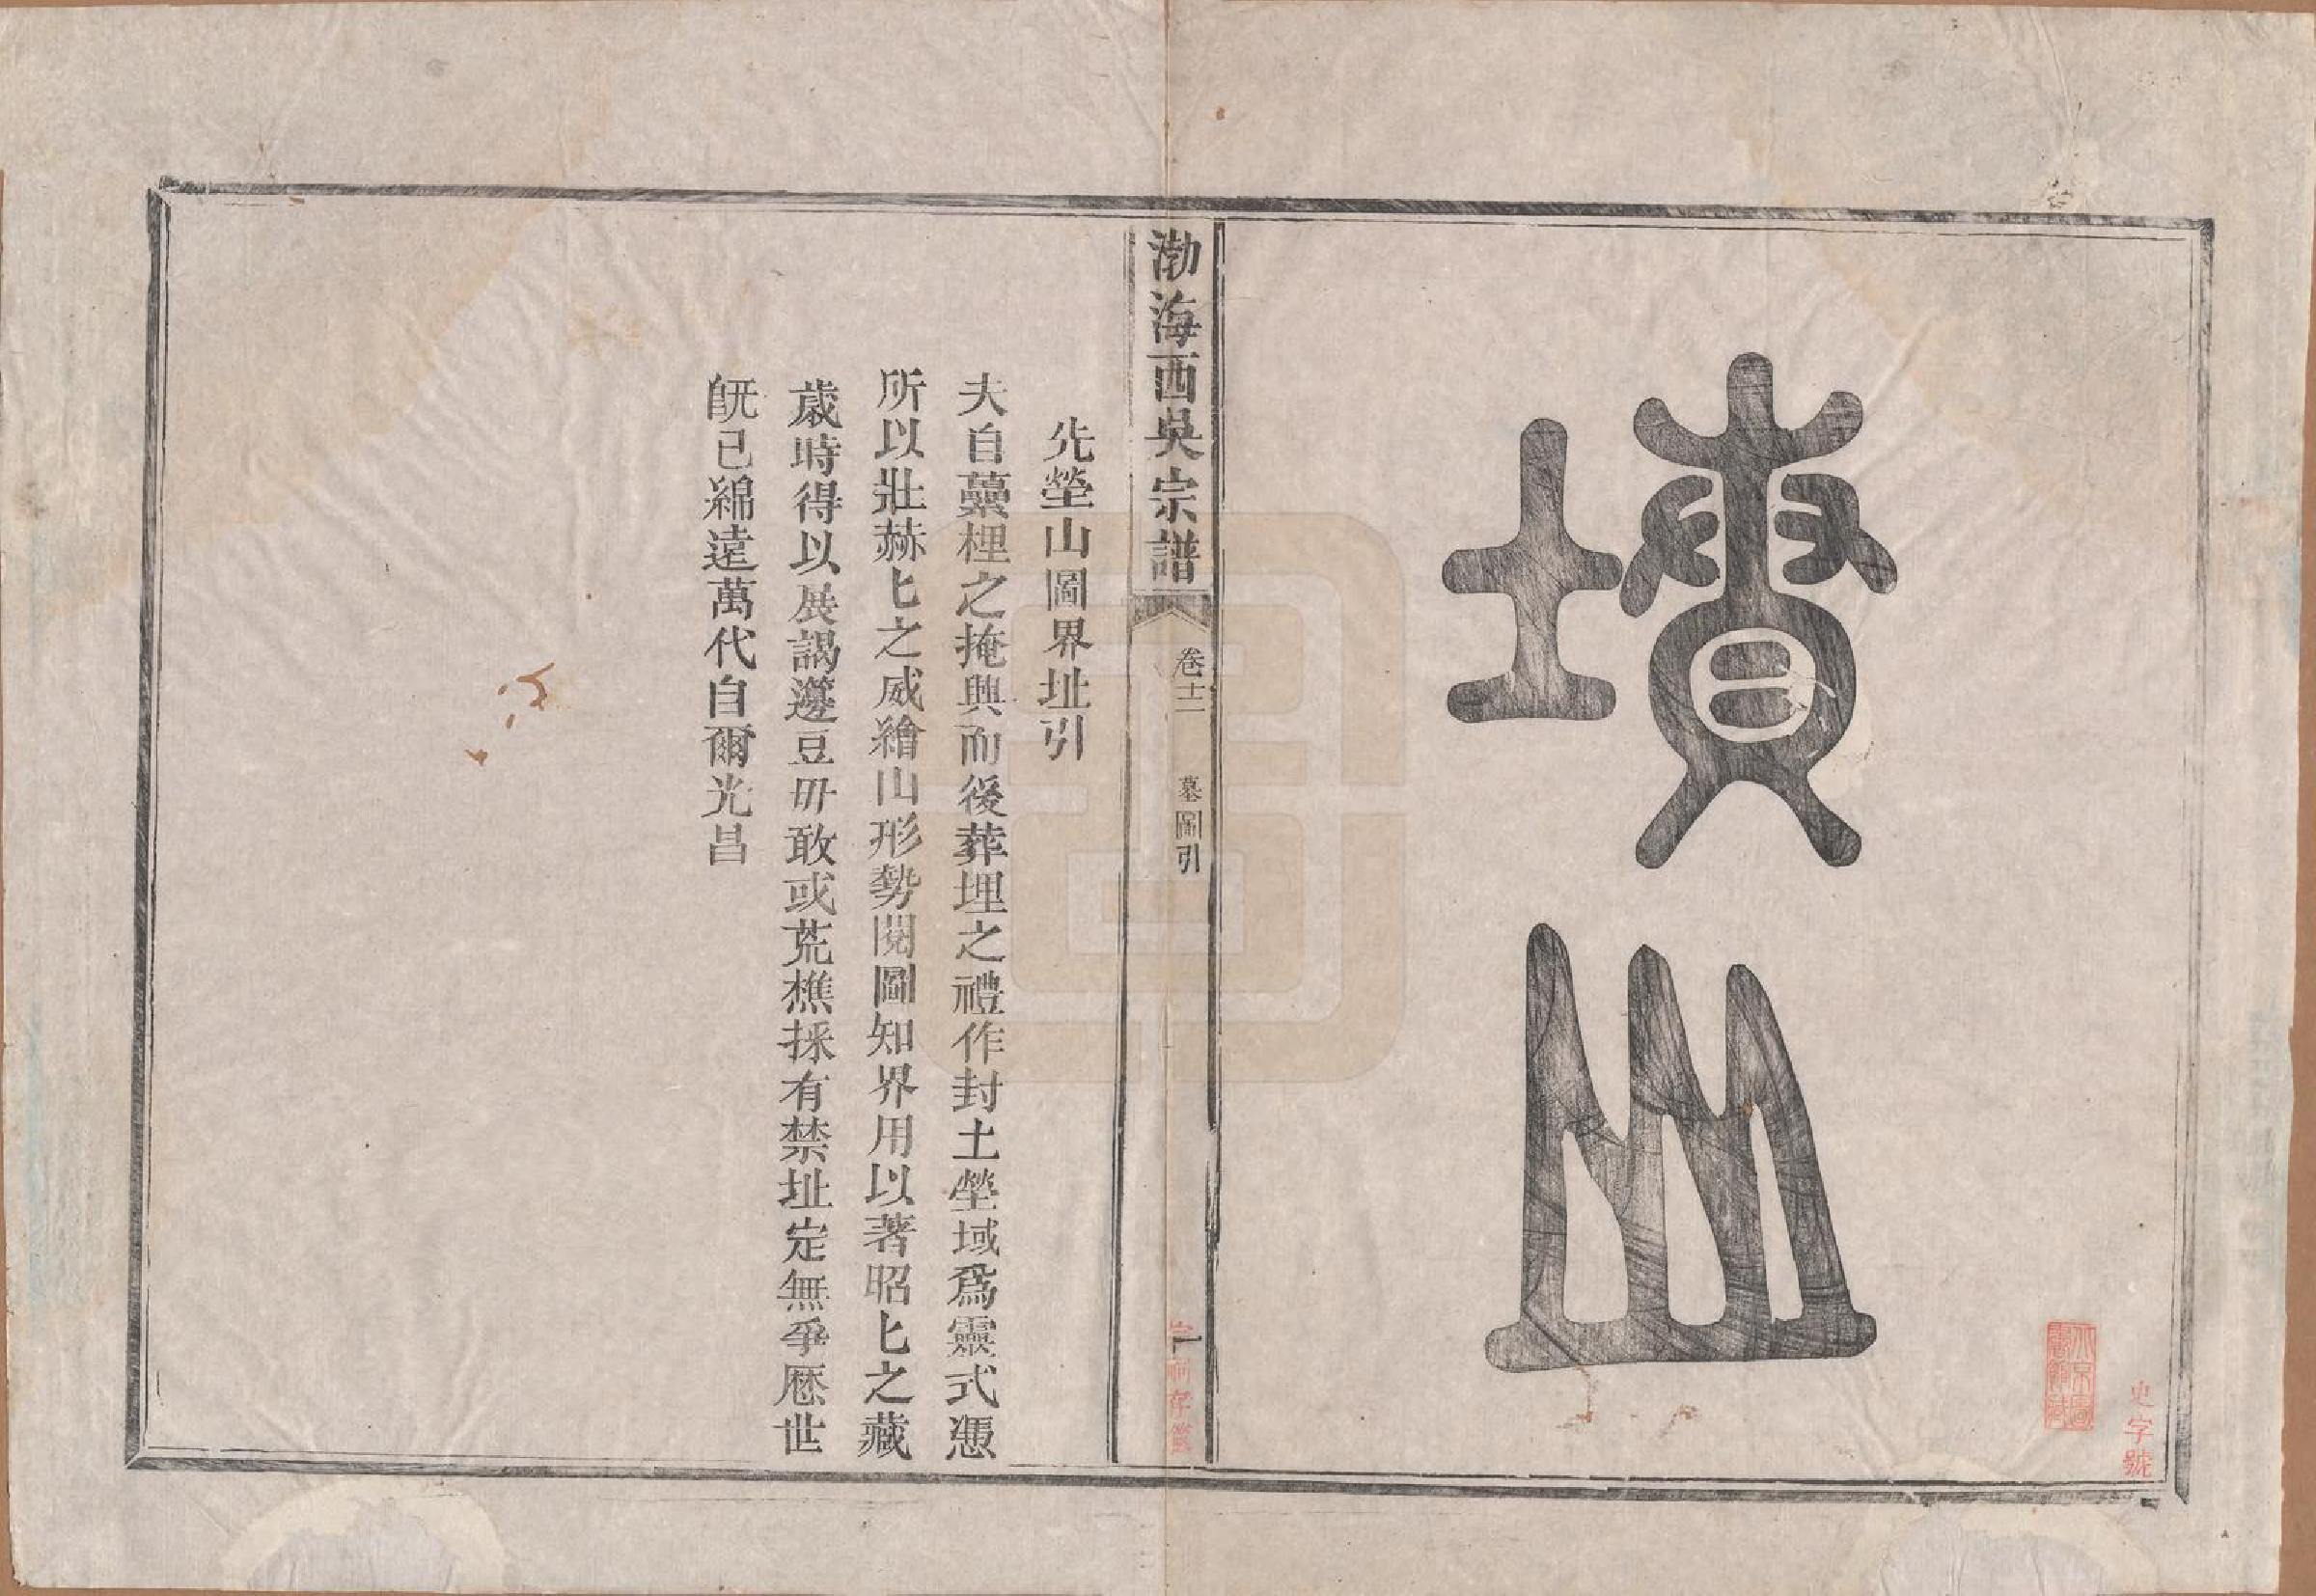 墳山
史字號
北京圖
書館藏
渤海西吳宗譜
卷十二
墓圖引
一
先塋山圖界址引
夫自虆梩之掩興而後葬埋之禮作封土塋域爲靈式憑
所以壯赫匕之威繪山形勢閱圖知界用以著昭匕之藏
歲時得以展謁籩豆毋敢或荒樵採有禁址定無爭歷世
旣已綿遠萬代自爾光昌